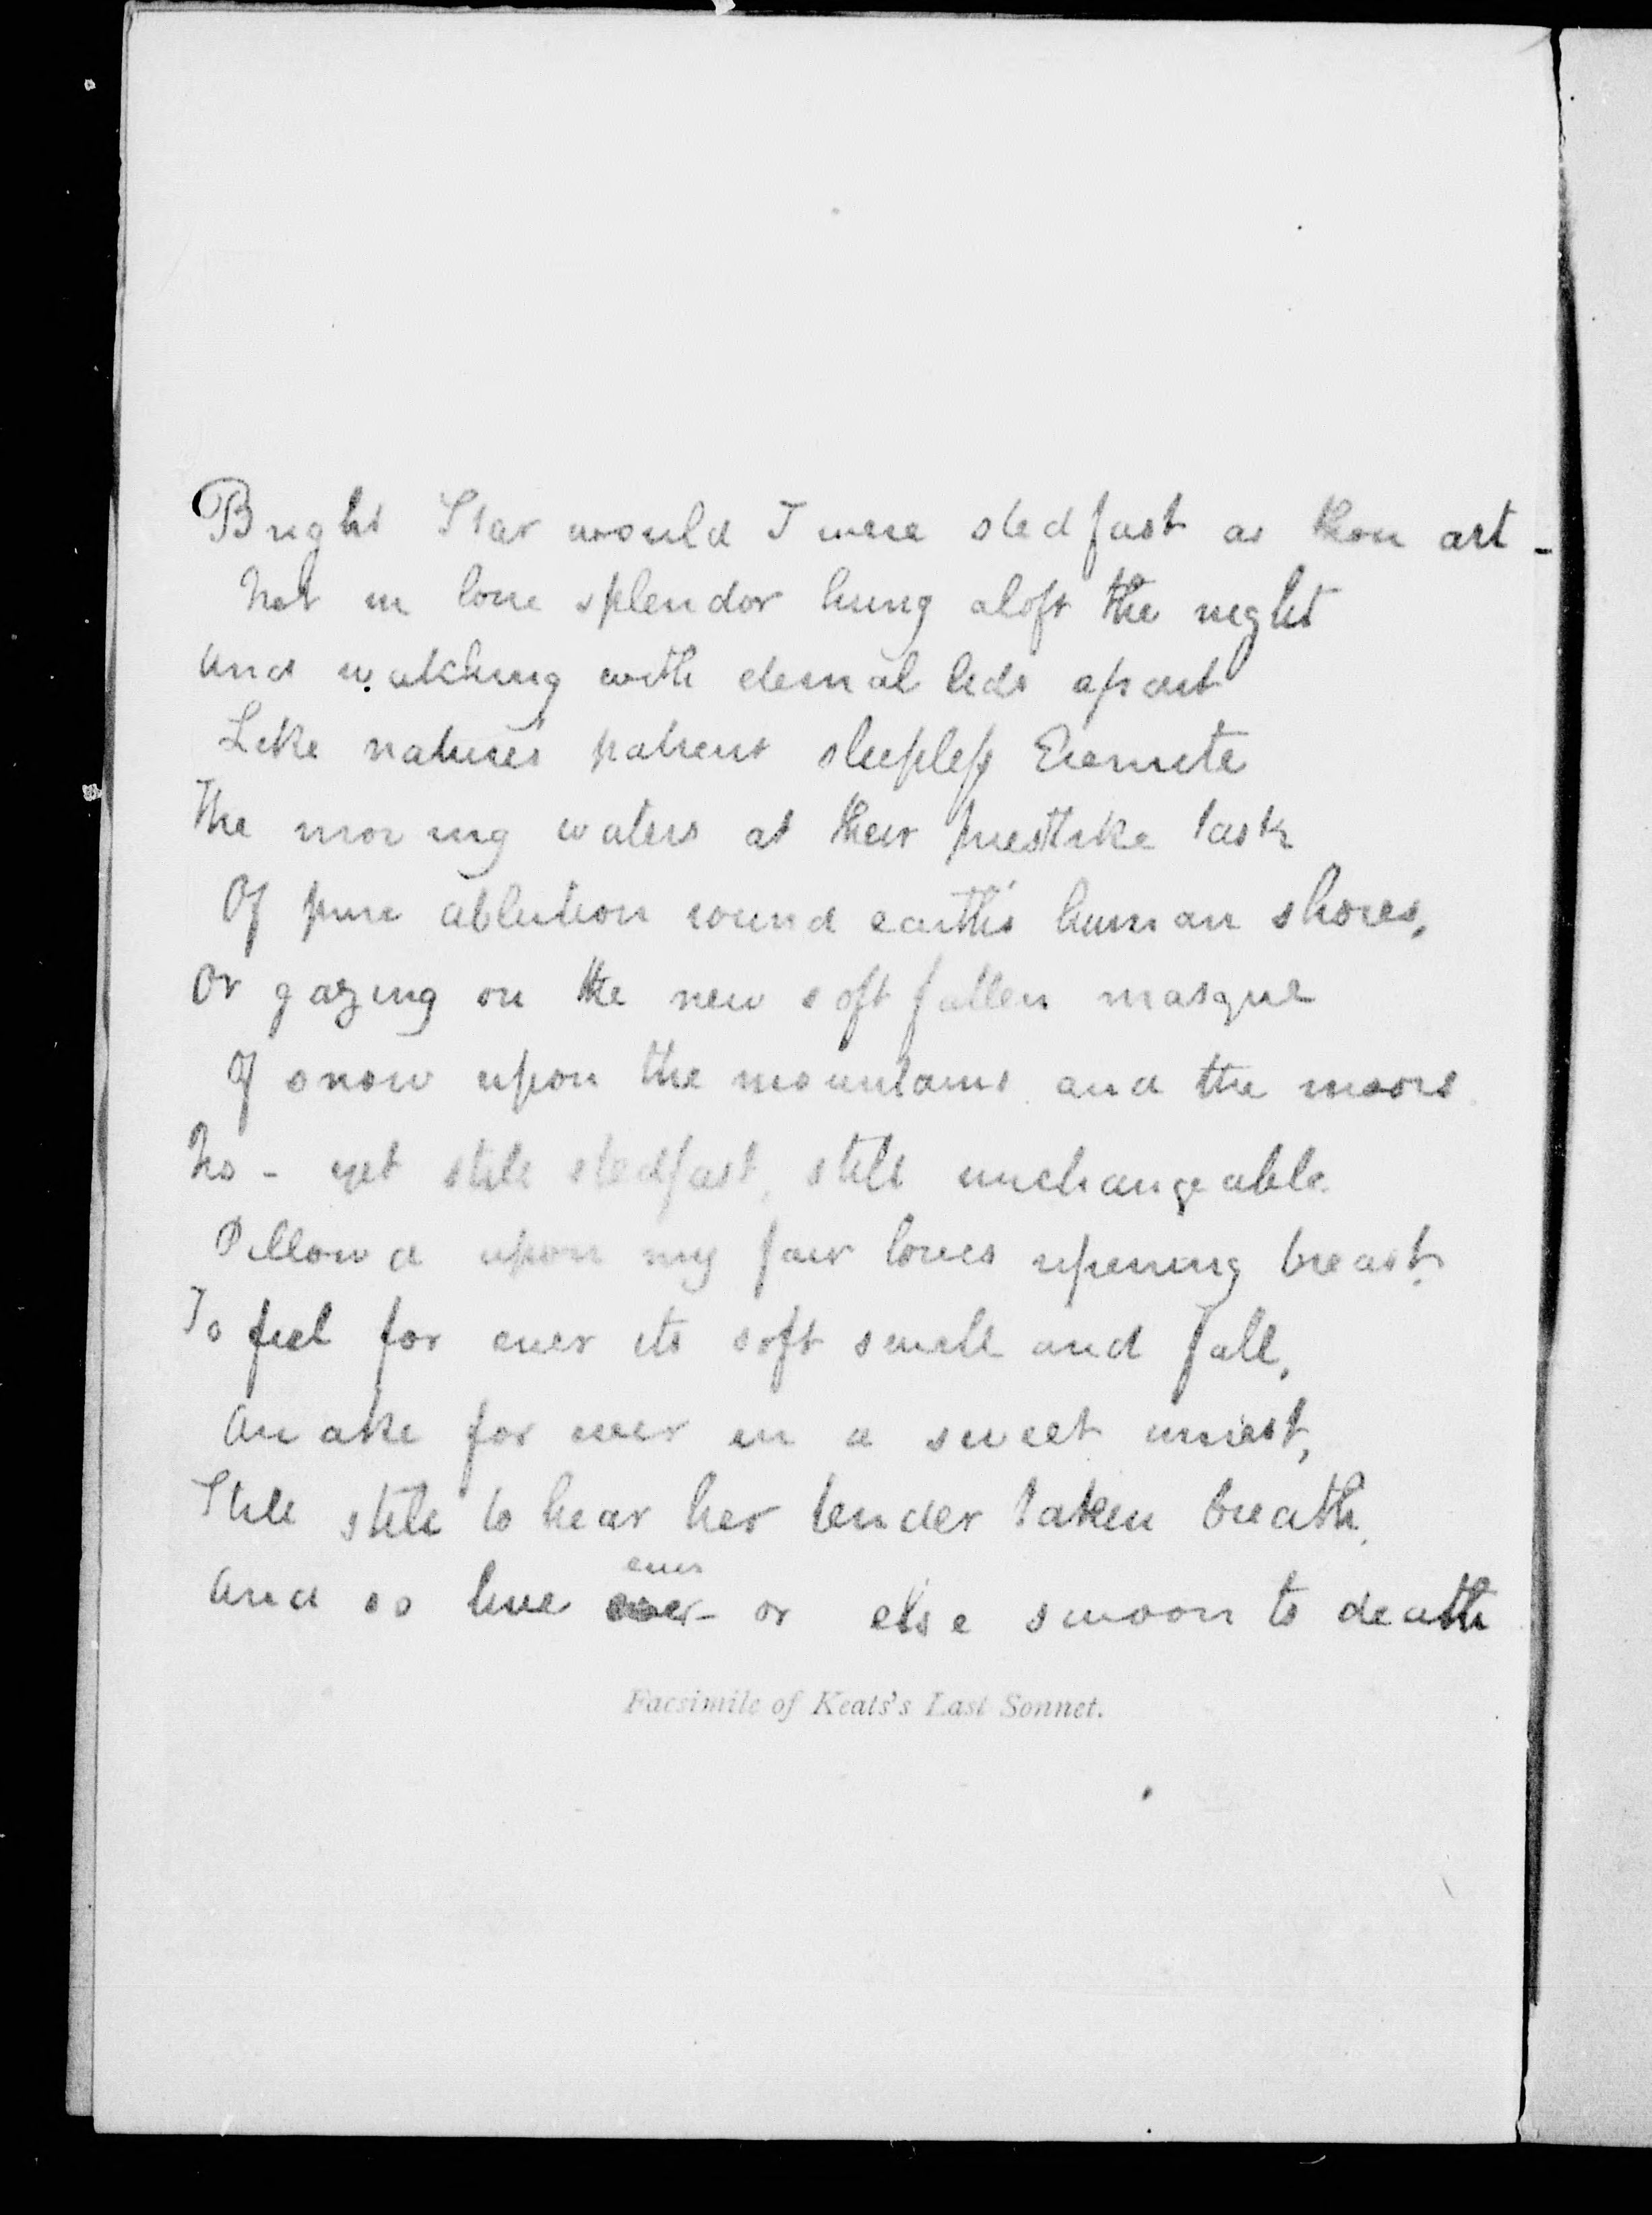 Bright Star would I were stedfast as thou art -
Not in lone splendor hung aloft the night
And watching with eternal lids apart
Like nature's patient sleepless Eremite
The moving waters at their priestlike task
Of pure ablution round earth's human shores,
Or gazing on the new soft fallen masque
Of snow upon the mountains and the moors.
No - yet still stedfast, still unchangeable
Pillow'd upon my fair love's ripening breast,
To feel for ever its soft swell and fall,
Awake for ever in a sweet unrest,
Still still to hear her tender taken breath,
ever
And so live ever - or else swoon to death
Facsimile of Keats's Last Sonnet.